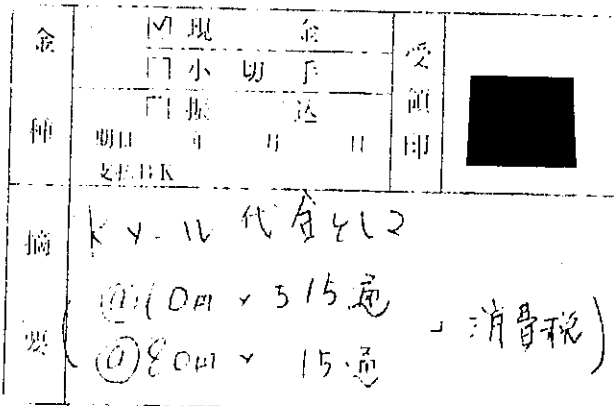 金種
☑ 現金
□ 小切手
□ 振込
期日 年 月 日
支払BK
受領印
摘要
メール代金として
@ 10円 × 515通
@ 80円 × 15通
消費税)